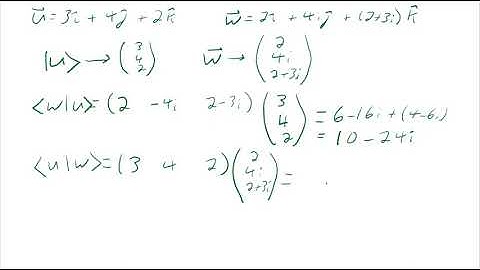 u⃗ = 3î + 4ĵ + 2k̂    w⃗ = 2î + 4iĵ + (2+3i)k̂
|u> → (3 4 2)    w⃗ → (2 4i 2+3i)
<w|u> = (2 -4i 2-3i) (3 4 2) = 6-16i+(4-6i)
= 10-24i
<u|w> = (3 4 2) (2 4i 2+3i) =